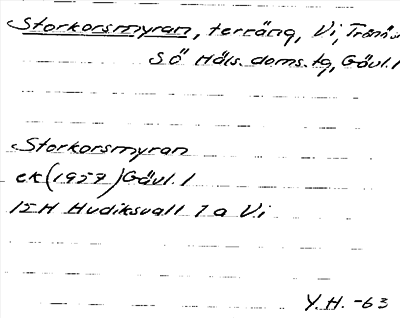 Storkorsmyran, terräng, Vi, Tranö
SÖ Häls. doms. tg, Gävl. l
Storkorsmyran
ek (1957) Gävl. l
15H Hudiksvall 7 a Vi
Y.H. -63